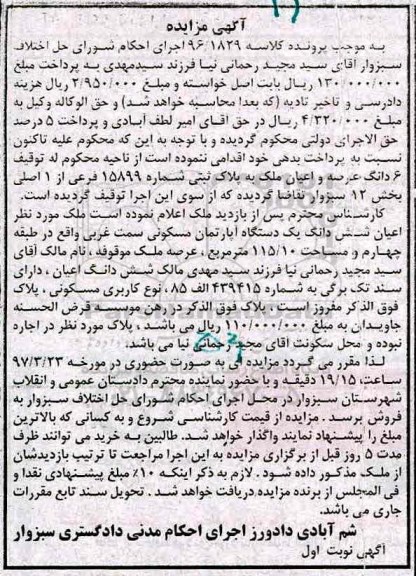 آگهی مزایده
به موجب پرونده کلاسه ۹۶/۱۸۳۹ اجرای احکام شورای حل اختلاف
سبزوار آقای سید مجید رحمانی نیا فرزند سیدمهدی به پرداخت مبلغ
۱۳۰/۰۰۰/۰۰۰ ریال بابت اصل خواسته و مبلغ ۳/۹۵۰/۰۰۰ ریال هزینه
دادرسی و تاخیر تادیه (که بعدا محاسبه خواهد شد) و حق الوکاله وکیل به
مبلغ ۴/۳۲۰/۰۰۰ ریال در حق آقای امیر لطف آبادی و پرداخت ۵ درصد
حق الاجرای دولتی محکوم گردیده و با توجه به این که محکوم علیه تاکنون
نسبت به پرداخت بدهی خود اقدامی ننموده است از ناحیه محکوم له توقیف
۶ دانگ عرصه و اعیان ملک به پلاک ثبتی شماره ۱۵۸۹۹ فرعی از ۱ اصلی
بخش ۱۲ سبزوار تقاضا گردیده که از سوی این اجرا توقیف گردیده است.
کارشناس محترم پس از بازدید ملک اعلام نموده است ملک مورد نظر
اعیان شش دانگ یک دستگاه آپارتمان مسکونی سمت غربی واقع در طبقه
چهارم و مساحت ۱۱۵/۱۰ مترمربع ، عرصه ملک موقوفه ، نام مالک آقای
سید مجید رحمانی نیا فرزند سید مهدی مالک شش دانگ اعیان ، دارای
سند تک برگی به شماره ۴۳۹۴۱۵ الف ۸۵ ، نوع کاربری مسکونی ، پلاک
فوق الذکر مفروز است . پلاک فوق الذکر در رهن موسسه قرض الحسنه
جاویدان به مبلغ ۱۱۰/۰۰۰/۰۰۰ ریال می باشد ، پلاک مورد نظر در اجاره
نبوده و محل سکونت آقای مجید رحمانی نیا می باشد.
لذا مقرر می گردد مزایده ای به صورت حضوری در مورخه ۹۷/۳/۲۳
ساعت ۱۹/۱۵ دقیقه و با حضور نماینده محترم دادستان عمومی و انقلاب
شهرستان سبزوار در محل اجرای احکام شورای حل اختلاف سبزوار به
فروش برسد . مزایده از قیمت کارشناسی شروع و به کسانی که بالاترین
مبلغ را پیشنهاد نمایند واگذار خواهد شد. طالبین به خرید می توانند ظرف
مدت ۵ روز قبل از برگزاری مزایده به این اجرا مراجعت تا ترتیب بازدیدشان
از ملک مذکور داده شود . لازم به ذکر اینکه ۱۰٪ مبلغ پیشنهادی نقدا و
فی المجلس از برنده مزایده دریافت خواهد شد . تحویل سند تابع مقررات
جاری می باشد.
شم آبادی دادورز اجرای احکام مدنی دادگستری سبزوار
آگهی نوبت اول